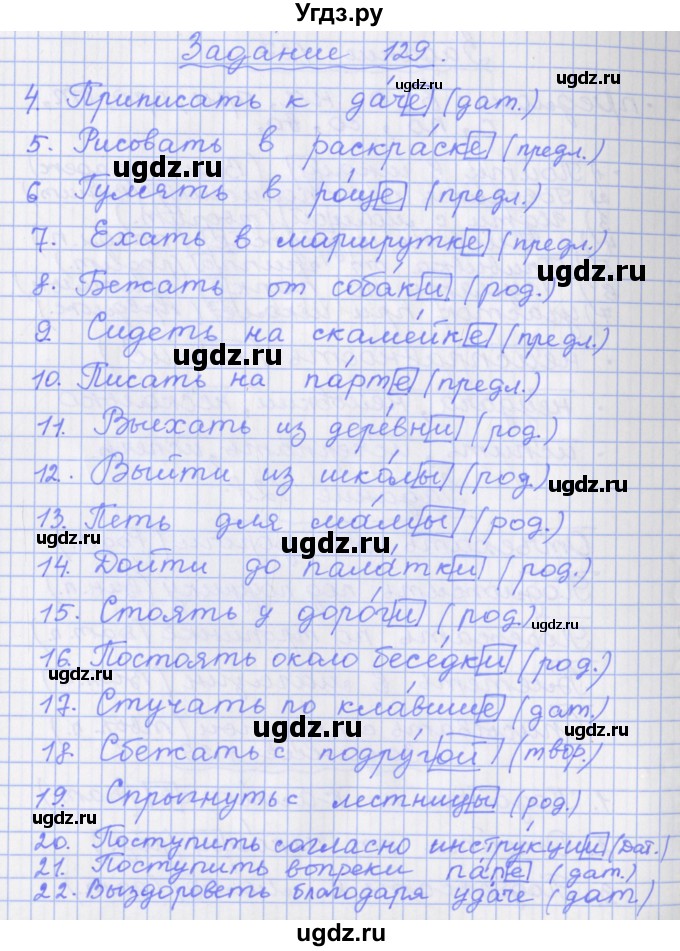 Угдз.ру
Задание 129.
4. Приписать к да́че (дат.)
5. Рисовать в раскра́ске (предл.)
ugdz.ru
6 Гулять в ро́ще (предл.)
7. Ехать в маршрутке (предл.)
ugdz.ru
8. Бежать от соба́ки (род.)
9. Сидеть на скаме́йке (предл.)
ugdz.ru
ugdz.ru
10. Писать на па́рте (предл.)
11. Выехать из дере́вни (род.)
12. Выйти из шко́лы (род.)
ugdz.ru
13. Петь для ма́мы (род.)
ugdz.ru
ugdz.ru
14. Дойти до пала́тки (род.)
15. Стоять у доро́ги (род.)
ugdz.ru
16. Постоять около бесе́дки (род.)
ugdz.ru
17. Стучать по кла́више (дат.)
ugdz.ru
18. Сбежать с подру́гой (твор.)
ugdz.ru
19. Спрыгнуть с лестницы (род.)
20. Поступить согласно инстру́кции (Дат.)
21. Поступить вопреки па́пе (дат.)
22. Выздороветь благодаря уда́че (дат)
ugdz.ru
ugdz.ru